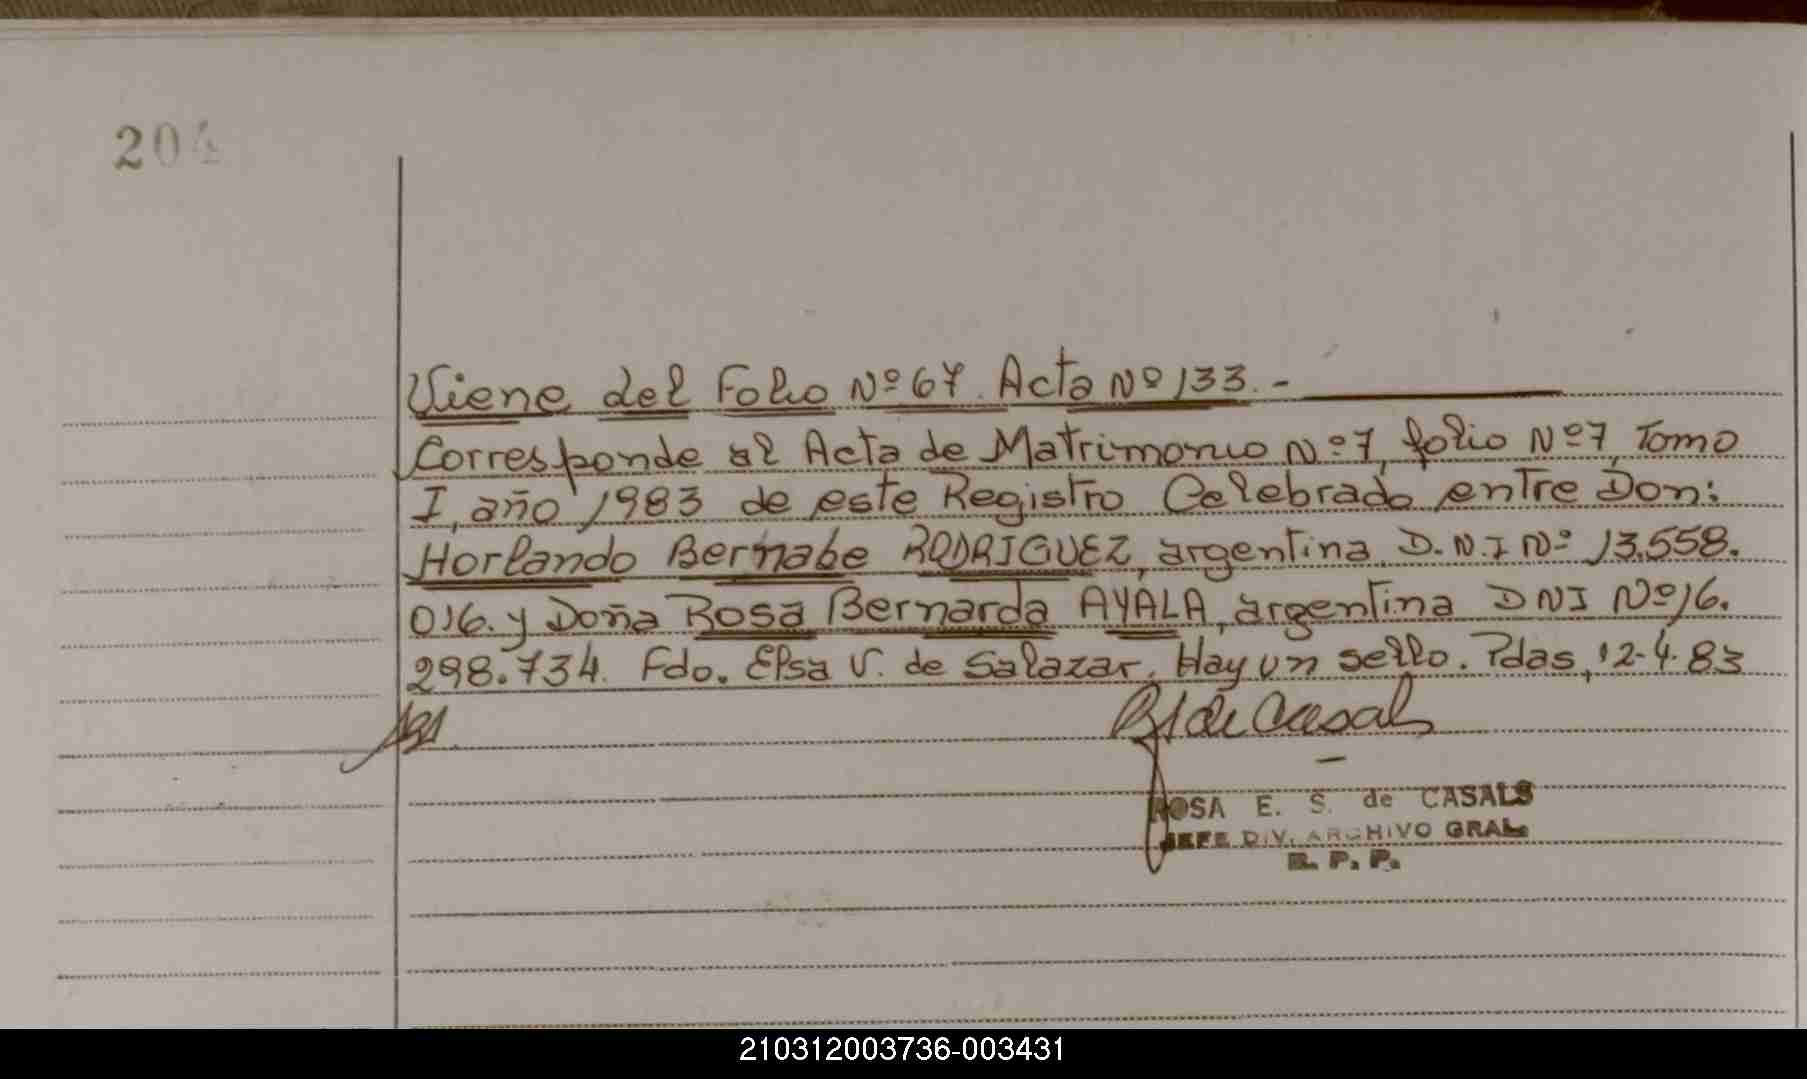 204
Viene del Folio Nº 67. Acta Nº 133.-
Corresponde al Acta de Matrimonio Nº 7, folio Nº 7, Tomo
I, año 1983 de este Registro Celebrado entre Don:
Horlando Bernabe RODRIGUEZ, argentina, D.N.I Nº 13.558.
016. y Doña Rosa Bernarda AYALA, argentina DNI Nº 16.
298.734. Fdo. Elsa V. de Salazar. Hay un sello. Pdas, 12-4-83
de Casals
ROSA E. S. de CASALS
JEFE DIV. ARCHIVO GRAL.
R. P. P.
210312003736-003431